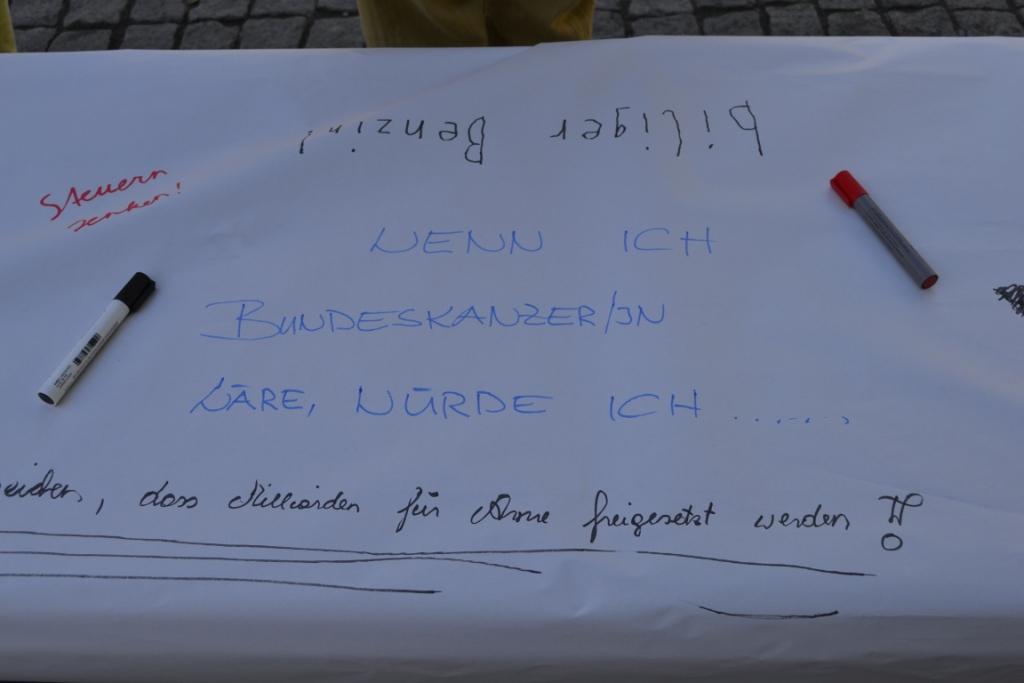 billiger Benzin!
Steuern
senken!
WENN ICH
BUNDESKANZER/IN
WÄRE, WÜRDE ICH .......
dass Milliarden für Arme freigesetzt werden !